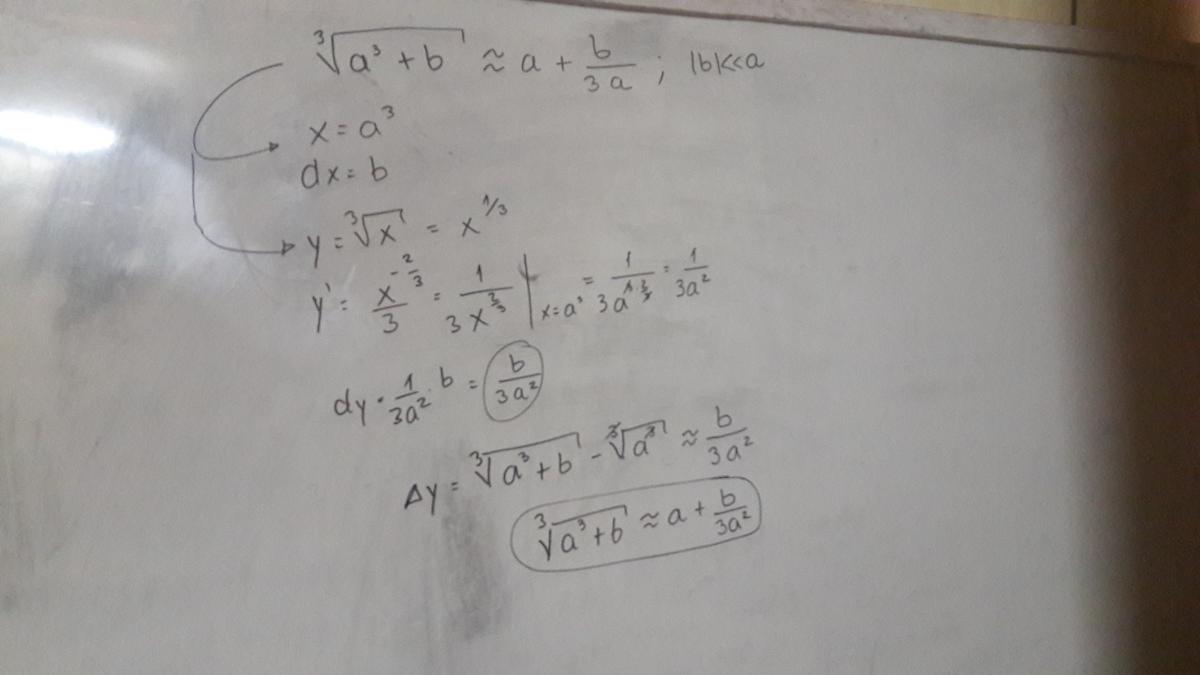 ∛(a³ + b) ≈ a + b/(3a) ; |b|<<a
x = a³
dx = b
y = ∛x = x^(1/3)
y' = x^(-2/3)/3 = 1/(3x^(2/3)) |x=a³ = 1/(3a^(3·2/3)) = 1/(3a²)
dy = 1/(3a²) · b = b/(3a²)
Δy = ∛(a³ + b) - ∛(a³) ≈ b/(3a²)
∛(a³ + b) ≈ a + b/(3a²)